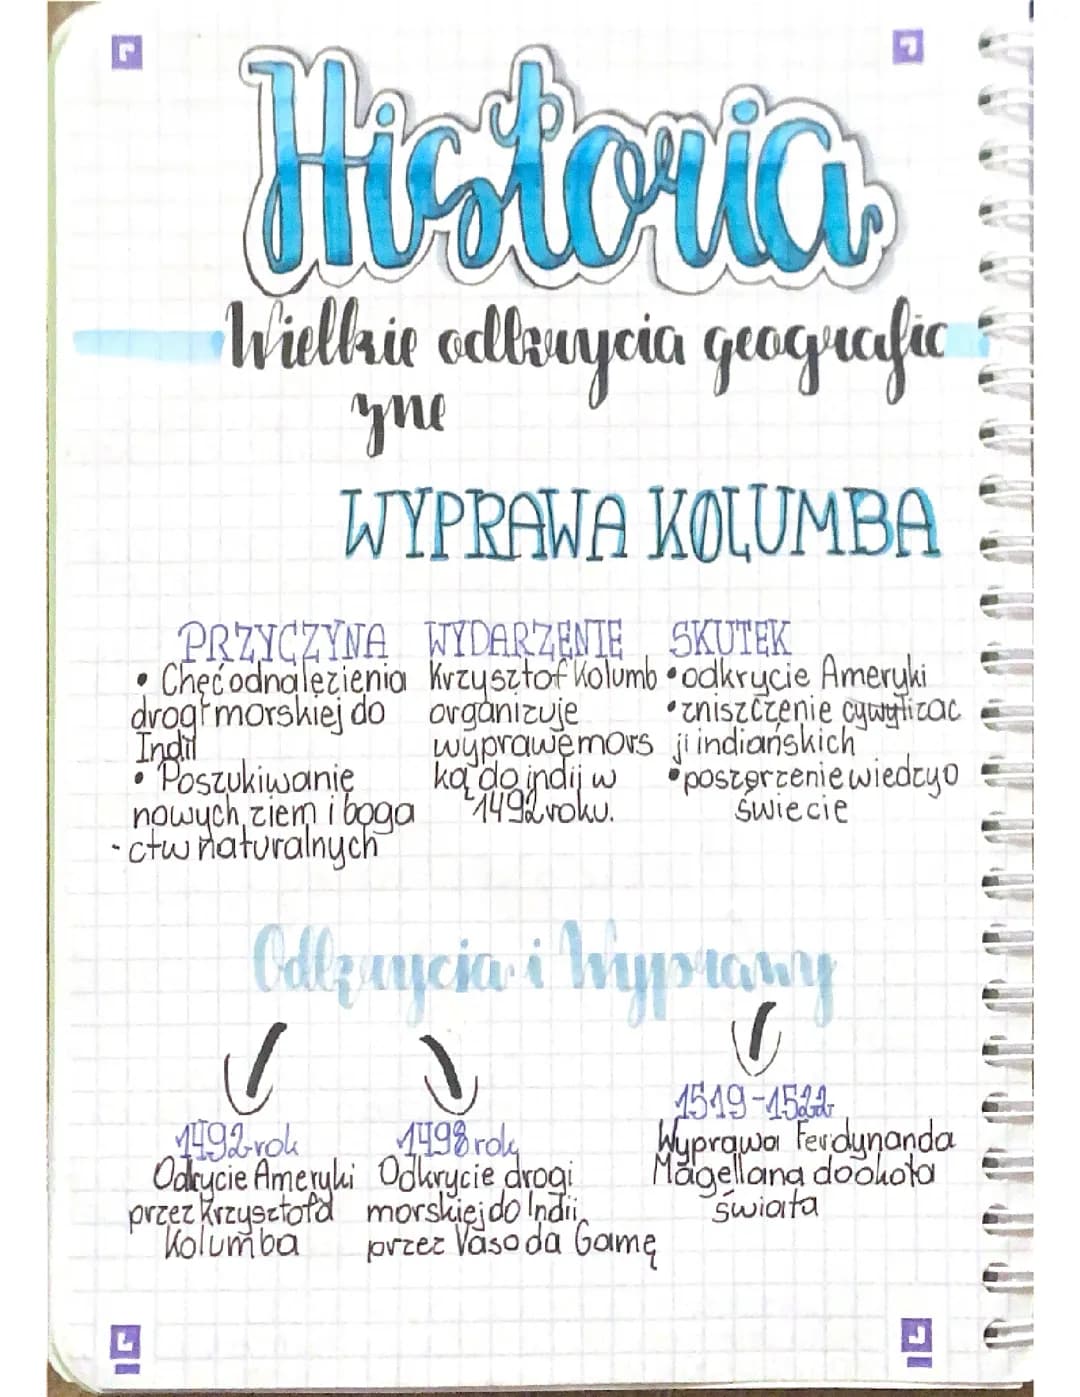 Historia
Wielkie odkrycia geografic
zne
WYPRAWA KOLUMBA
PRZYCZYNA
• Chęć odnalezienia
drogi morskiej do
Indii
• Poszukiwanie
nowych ziem i boga
-ctw naturalnych
WYDARZENIE
Krzysztof Kolumb
organizuje
wyprawę mors
ką do indii w
1492 roku.
SKUTEK
• odkrycie Ameryki
• zniszczenie cywylizac
ji indiańskich
• poszerzenie wiedzy o
świecie
Odkrycia i Wyprawy
1492 rok
Odkrycie Ameryki
przez Krzysztofa
Kolumba
1498 rok
Odkrycie drogi
morskiej do Indii
przez Vaso da Gamę
1519-1522
Wyprawa Ferdynanda
Magellana dookoła
świata